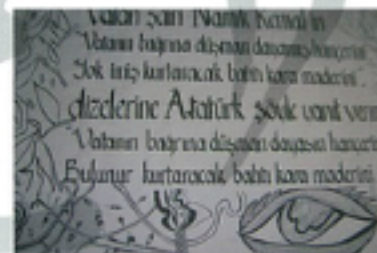 Vatan Şairi Namık Kemal'in
Vatanın bağrına düşman dayamış hançerini
Yok imiş kurtaracak bahtı kara maderini".
dizelerine Atatürk şöyle yanıt verir
Vatanın bağrına düşman dayasın hançerini
Bulunur kurtaracak bahtı kara maderini